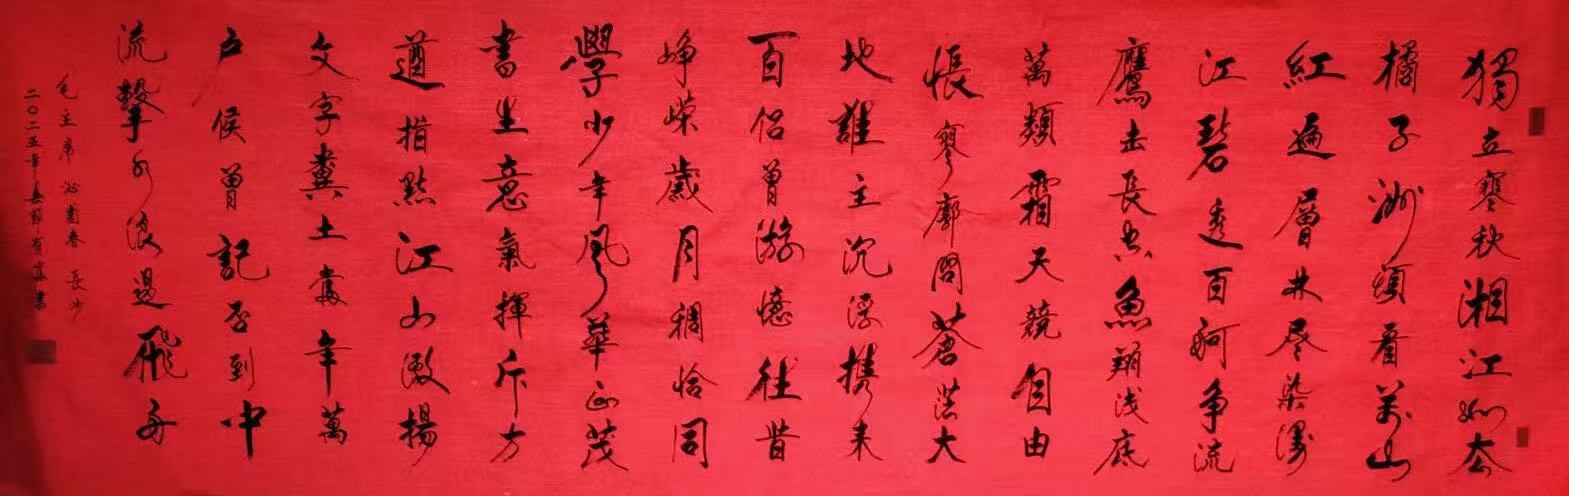 獨立寒秋湘江北去
橘子洲頭看萬山
紅遍層林尽染漫
江碧透百舸争流
鷹击長空魚翔浅底
萬類霜天競自由
悵寥廓問蒼茫大
地誰主沉浮携来
百侣曾游憶往昔
崢嶸歲月稠恰同
學少年風華正茂
書生意氣揮斥方
遒指點江山激揚
文字糞土當年萬
户侯曾記否到中
流擊水浪遏飛舟
毛主席 沁園春 長沙
二〇二五年春節有書